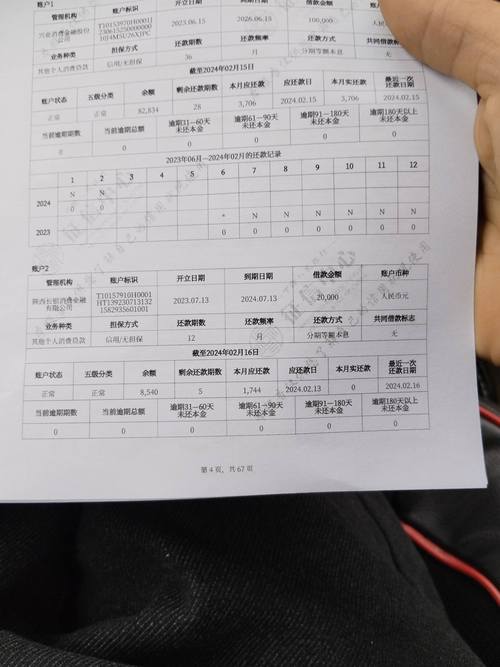 账户1
管理机构 账户标识 开立日期 到期日期 借款金额
兴业消费金融股份公司 T10153970H0001J 2023.06.15 2026.06.15 100,000 人民
业务种类 担保方式 还款期数 还款频率 还款方式 共同借款标志
其他个人消费贷款 信用/无担保 36 月 分期等额本息 无
截至2024年02月15日
账户状态 五级分类 余额 剩余还款期数 本月应还款 应还款日 本月实还款 最近一次还款日期
正常 正常 82,834 28 3,706 2024.02.15 3,706 2024.02.15
当前逾期期数 当前逾期总额 逾期31—60天未还本金 逾期61—90天未还本金 逾期91—180天未还本金 逾期180天以上未还本金
0 0 0 0 0 0
2023年06月—2024年02月的还款记录
1 2 3 4 5 6 7 8 9 10 11 12
2024 N N
0 0
2023 * N N N N N N
0 0 0 0 0 0 0
账户2
管理机构 账户标识 开立日期 到期日期 借款金额 账户币种
陕西长银消费金融有限公司 T10157910H0001HT1392307131321582935601001 2023.07.13 2024.07.13 20,000 人民币元
业务种类 担保方式 还款期数 还款频率 还款方式 共同借款标志
其他个人消费贷款 信用/无担保 12 月 分期等额本息 无
截至2024年02月16日
账户状态 五级分类 余额 剩余还款期数 本月应还款 应还款日 本月实还款 最近一次还款日期
正常 正常 8,540 5 1,744 2024.02.13 0 2024.02.16
当前逾期期数 当前逾期总额 逾期31—60天未还本金 逾期61—90天未还本金 逾期91—180天未还本金 逾期180天以上未还本金
0 0 0 0 0 0
第 4 页，共 67 页